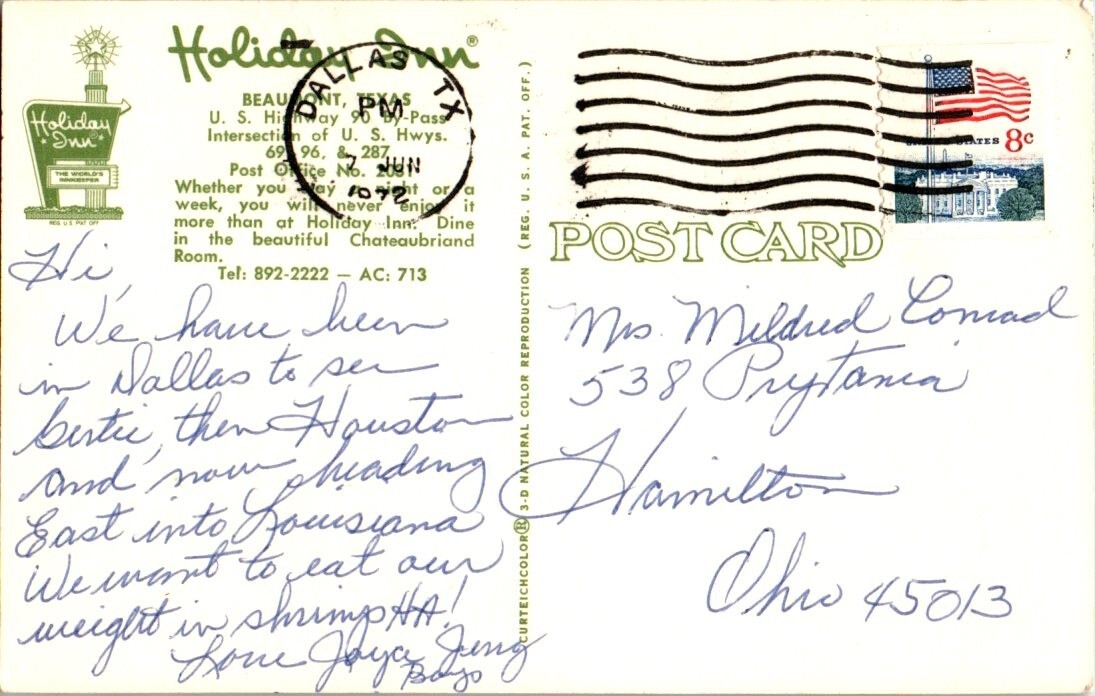 Holiday Inn®
BEAUMONT, TEXAS
U. S. Highway 90 By-Pass
Intersection of U. S. Hwys.
69, 96, & 287
Post Office No.
Whether you stay a night or a
week, you will never enjoy it
more than at Holiday Inn. Dine
in the beautiful Chateaubriand
Room.
Tel: 892-2222 — AC: 713
Holiday
Inn
THE WORLD'S
INNKEEPER
REG. U.S. PAT. OFF.
DALLAS TX
PM
7 JUN
1972
UNITED STATES 8c
POST CARD
CURTEICHCOLOR® 3-D NATURAL COLOR REPRODUCTION (REG. U. S. A. PAT. OFF.)
Hi,
We have been
in Dallas to see
Gertie, then Houston
and now heading
East into Louisiana
We want to eat our
weight in shrimp HA!
Love Joyce
Boys
Mrs. Mildred Conrad
538 Prytania
Hamilton
Ohio 45013